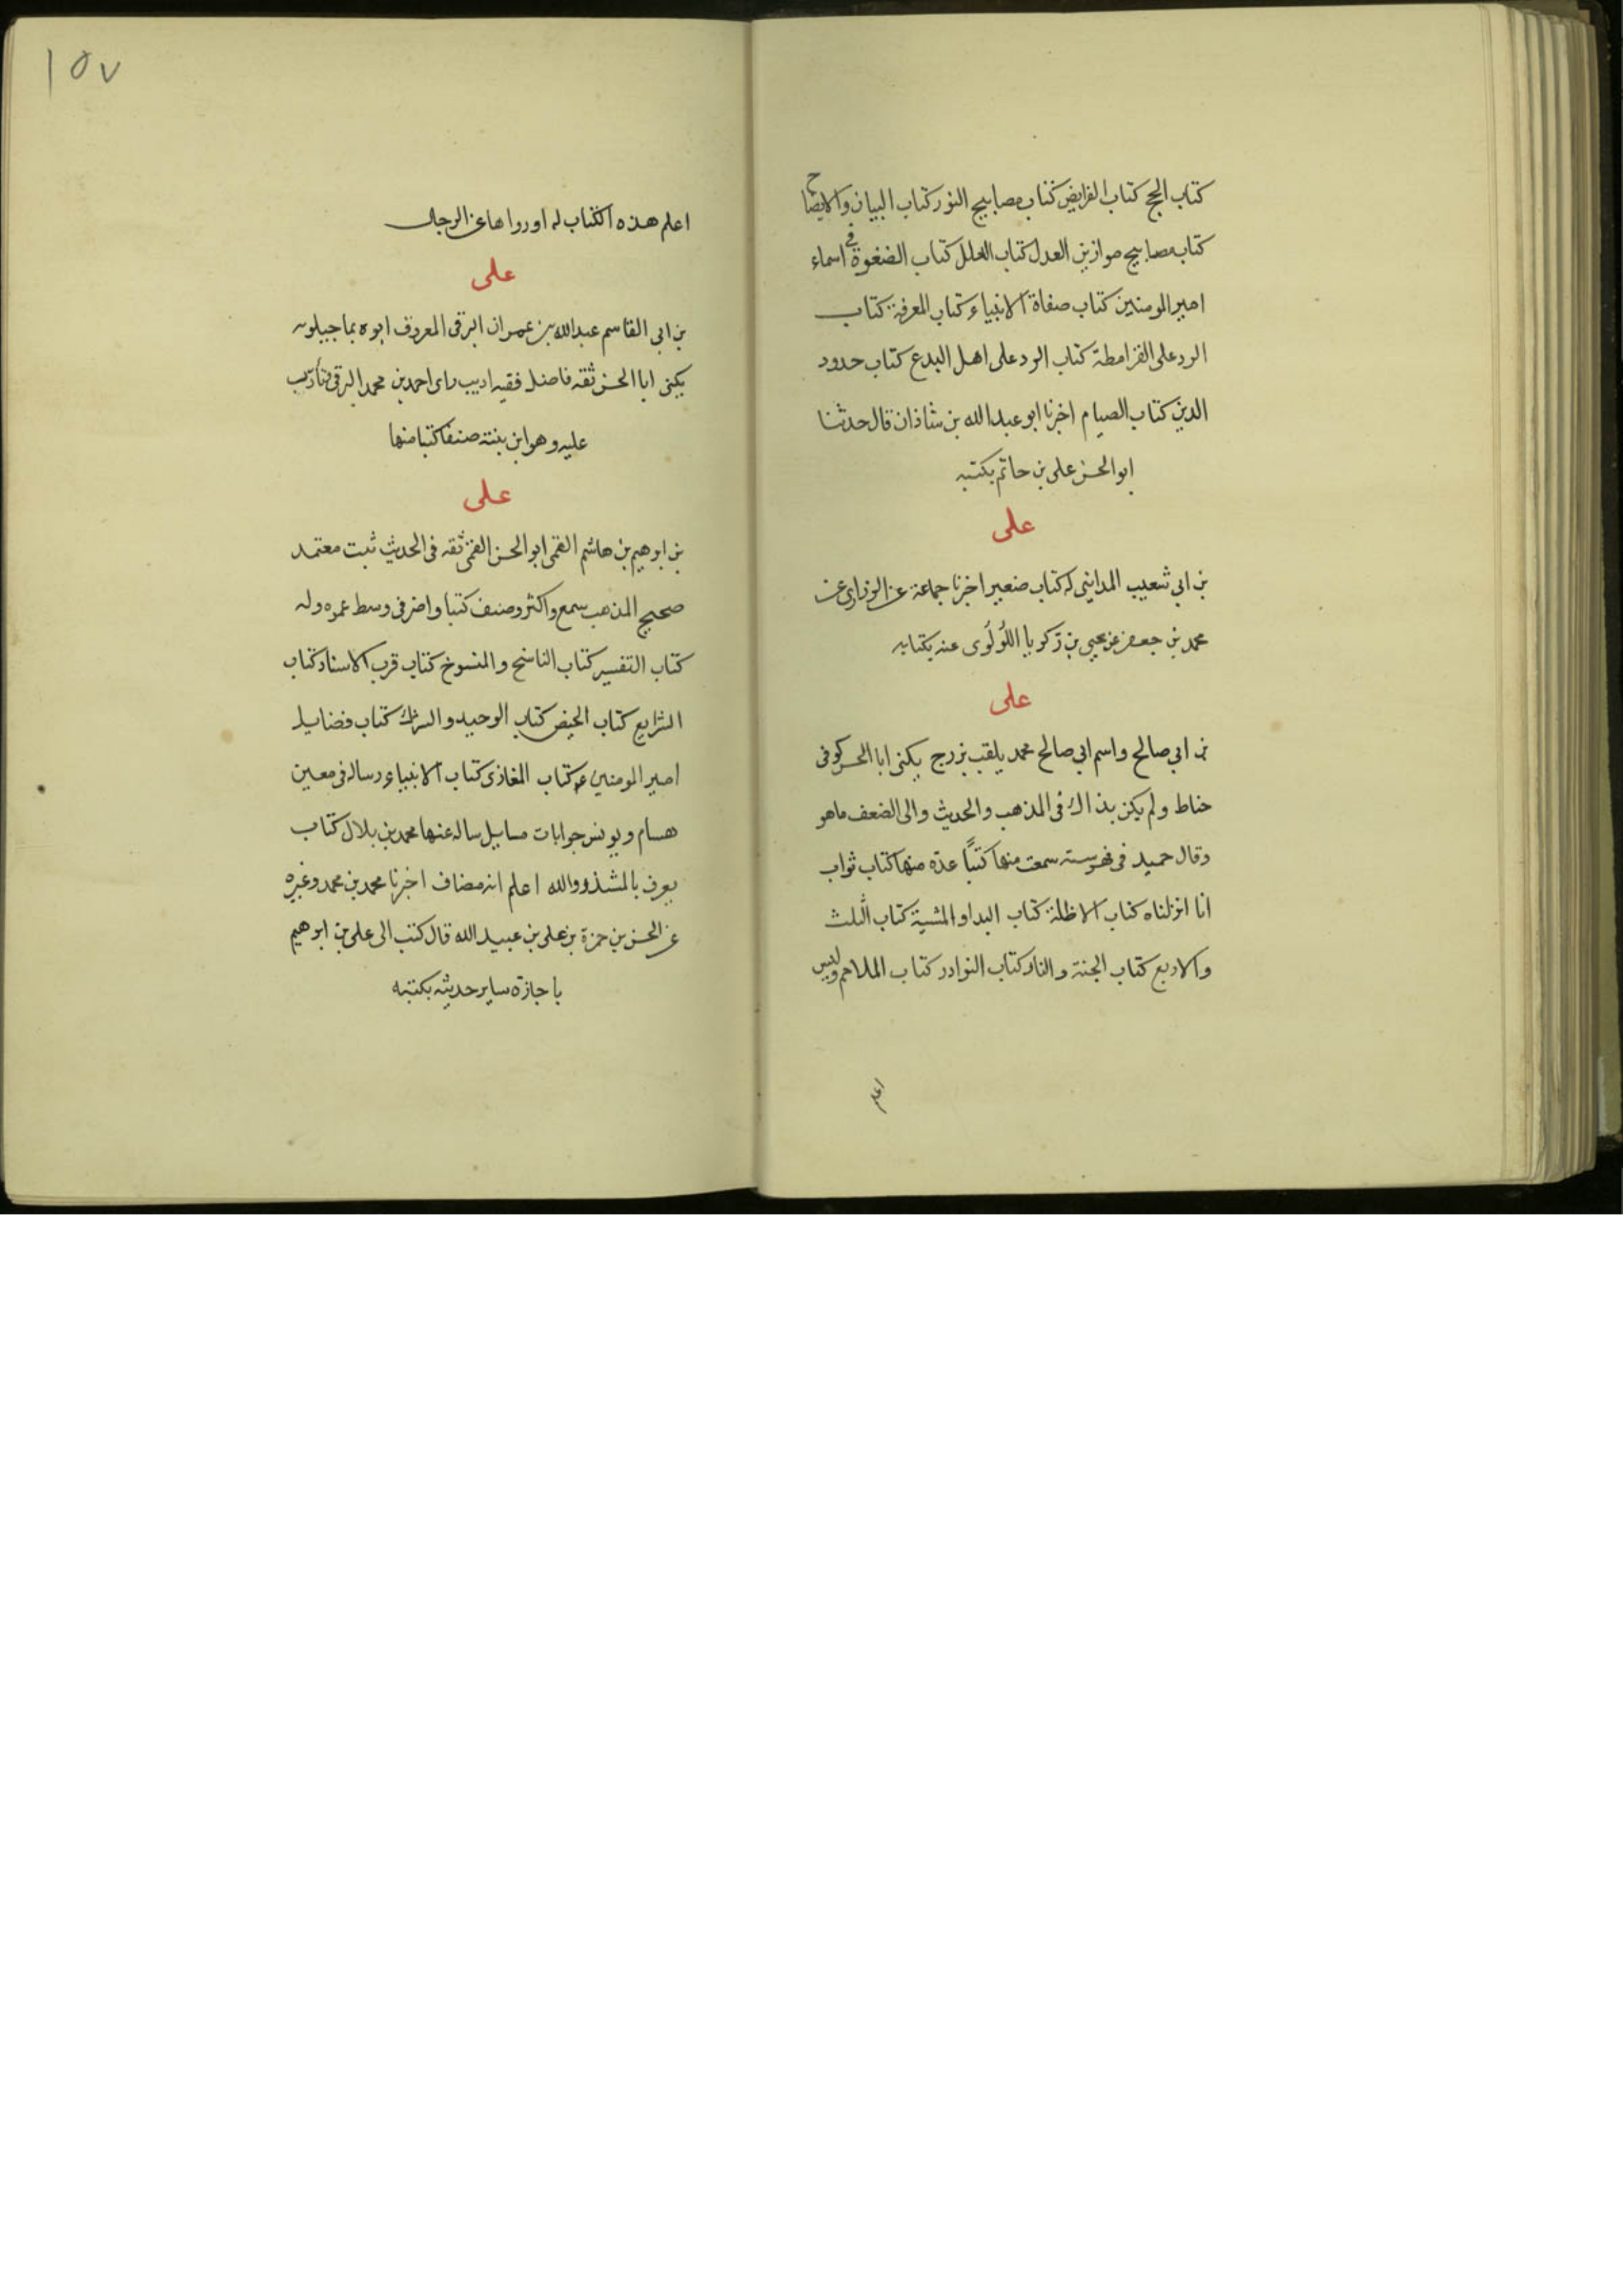 كتاب الحج كتاب الفرايض كتاب مصابيح النور كتاب البيان والايضاح
كتاب مصابيح موازين العدل كتاب العلل كتاب الصفوة في اسماء
امير المومنين كتاب صفاة الانبياء كتاب المعرفة كتاب
الرد على القرامطة كتاب الرد على اهل البدع كتاب حدود
الدين كتاب الصيام اخبرنا ابو عبد الله بن شاذان قال حدثنا
ابو الحسن على بن حاتم بكتبه
على
بن ابي شعيب المدايني له كتاب صغير اخبرنا جماعة عن الزرارى عن
محمد بن جعفر عن يحيى بن زكريا اللُولُوى عنه بكتابه
على
بن ابي صالح واسم ابي صالح محمد يلقب بزرج يكنى ابا الحسن كوفى
حناط ولم يكن بذاك فى المذهب والحديث والى الضعف ماهو
وقال حميد فى فهرسته سمعت منها كتبًا عدة منها كتاب ثواب
انا انزلناه كتاب الاظلة كتاب البداو المشية كتاب الثلث
والاربع كتاب الجنة والنار كتاب النوادر كتاب الملاحم وليس
اعلم
١٥٧
اعلم هذه الكتاب له اورواها عن الرجال
على
بن ابي القاسم عبدالله بن عمران البرقى المعروف ابوه بماجيلويه
يكنى ابا الحسن ثقه فاضل فقيه اديب راى احمد بن محمد البرقى وتأدب
عليه وهو ابن بنته صنف كتبا منها
على
بن ابرهيم بن هاشم القمى ابو الحسن القمى ثقه فى الحديث ثبت معتمد
صحيح المذهب سمع واكثر وصنف كتبا واضر فى وسط عمره وله
كتاب التفسير كتاب الناسخ والمنسوخ كتاب قرب الاسناد كتاب
الشرايع كتاب الحيض كتاب الوحيد والشرك كتاب فضايل
امير المومنين ع كتاب المغازى كتاب الانبياء رساله فى معين
هسام ويونس جوابات مسايل ساله عنها محمد بن بلال كتاب
يعرف بالمشذر والله اعلم انه مضاف اخبرنا محمد بن محمد وغيره
عن الحسن بن حمزة بن على بن عبيد الله قال كتب الى على بن ابرهيم
باجازة ساير حديثه بكتبه